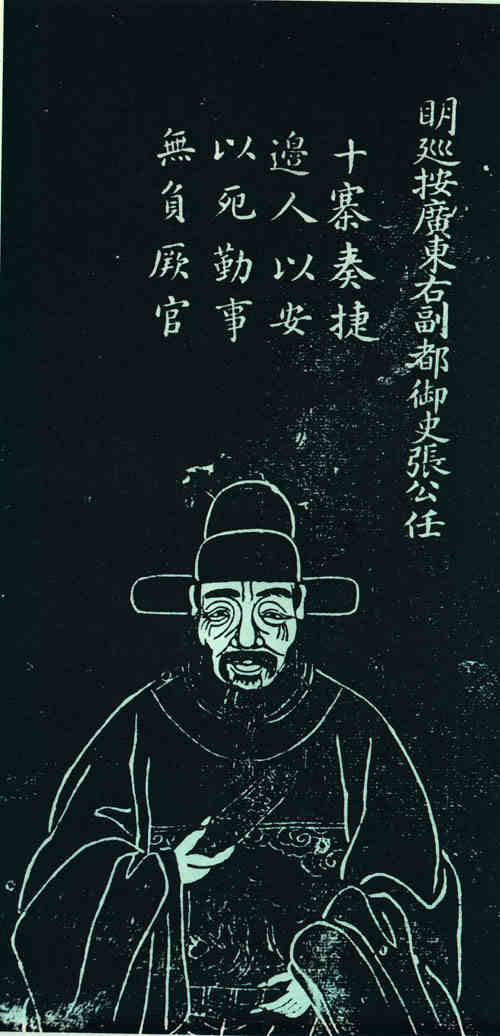 明廵按廣東右副都御史張公任
十寨奏捷
邊人以安
以死勤事
無負厥官